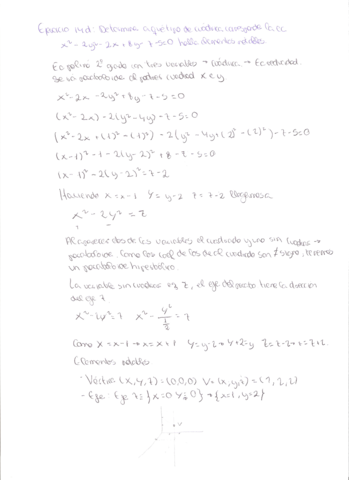 Determina a que tipo de cuádrica corresponde la ec
x² - 2y² - 2x + 8y - z - 5 = 0 halla elementos notables
Ec polino 2º grado en tres variables → cuádrica → Ec reducida.
x² - 2x - 2y² + 8y - z - 5 = 0
(x² - 2x) - 2(y² - 4y) - z - 5 = 0
(x² - 2x + (1)² - (1)²) - 2(y² - 4y + (2)² - (2)²) - z - 5 = 0
(x - 1)² - 1 - 2(y - 2)² + 8 - z - 5 = 0
(x - 1)² - 2(y - 2)² = z - 2
Haciendo X = x - 1 Y = y - 2 Z = z - 2 llegamos a
X² - 2Y² = Z
Al aparecer dos de las variables al cuadrado y una sin cuadrar →
paraboloide. Como los coef de los de al cuadrado son ≠ signo, tenemos
un paraboloide hiperbólico
La variable sin cuadrar es Z, el eje del parabo tiene la dirección
del eje Z
X² - 2Y² = Z X² - Y² / 1/2 = Z
Como X = x - 1 → x = X + 1 Y = y - 2 → Y + 2 = y Z = z - 2 → z = Z + 2
Elementos notables
- Vértice (X, Y, Z) = (0,0,0) V = (x, y, z) = (1, 2, 2)
- Eje: Eje Z = {X = 0 Y = 0} → {x = 1, y = 2}